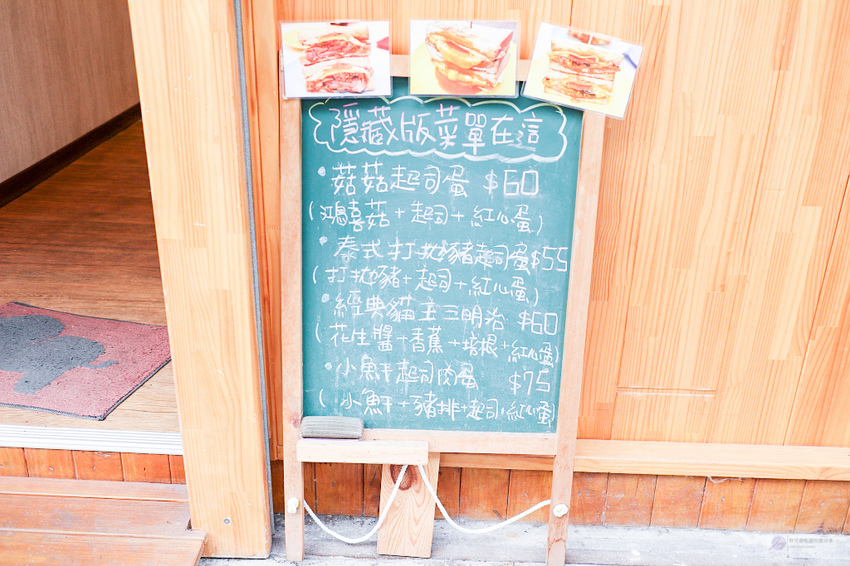 隱藏版菜單在這
•菇菇起司蛋 $60
(鴻喜菇+起司+紅心蛋)
•泰式打拋豬起司蛋$55
(打拋豬+起司+紅心蛋)
•經典貓王三明治 $60
(花生醬+香蕉+培根+紅心蛋)
•小魚干起司肉蛋 $75
(小魚干+豬排+起司+紅心蛋)